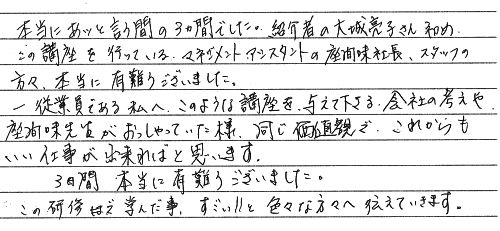 本当にあッと言う間の3日間でした。紹介者の大城亮子さん初め、
この講座を行っている、マネジメントアシスタントの座間味社長、スタッフの
方々、本当に有難うございました。
一従業員である私へ、このような講座を、与えて下さる、会社の考えや、
座間味先生がおっしゃっていた様、同じ価値観で、これからも
いい仕事が出来ればと思います。
3日間 本当に有難うございました。
この研修で学んだ事、すごい!!と色々な方々へ伝えていきます。